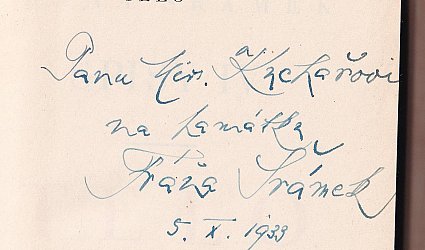 Panu Kuchařovi
na památku
Fráňa Šrámek
5. X. 1933